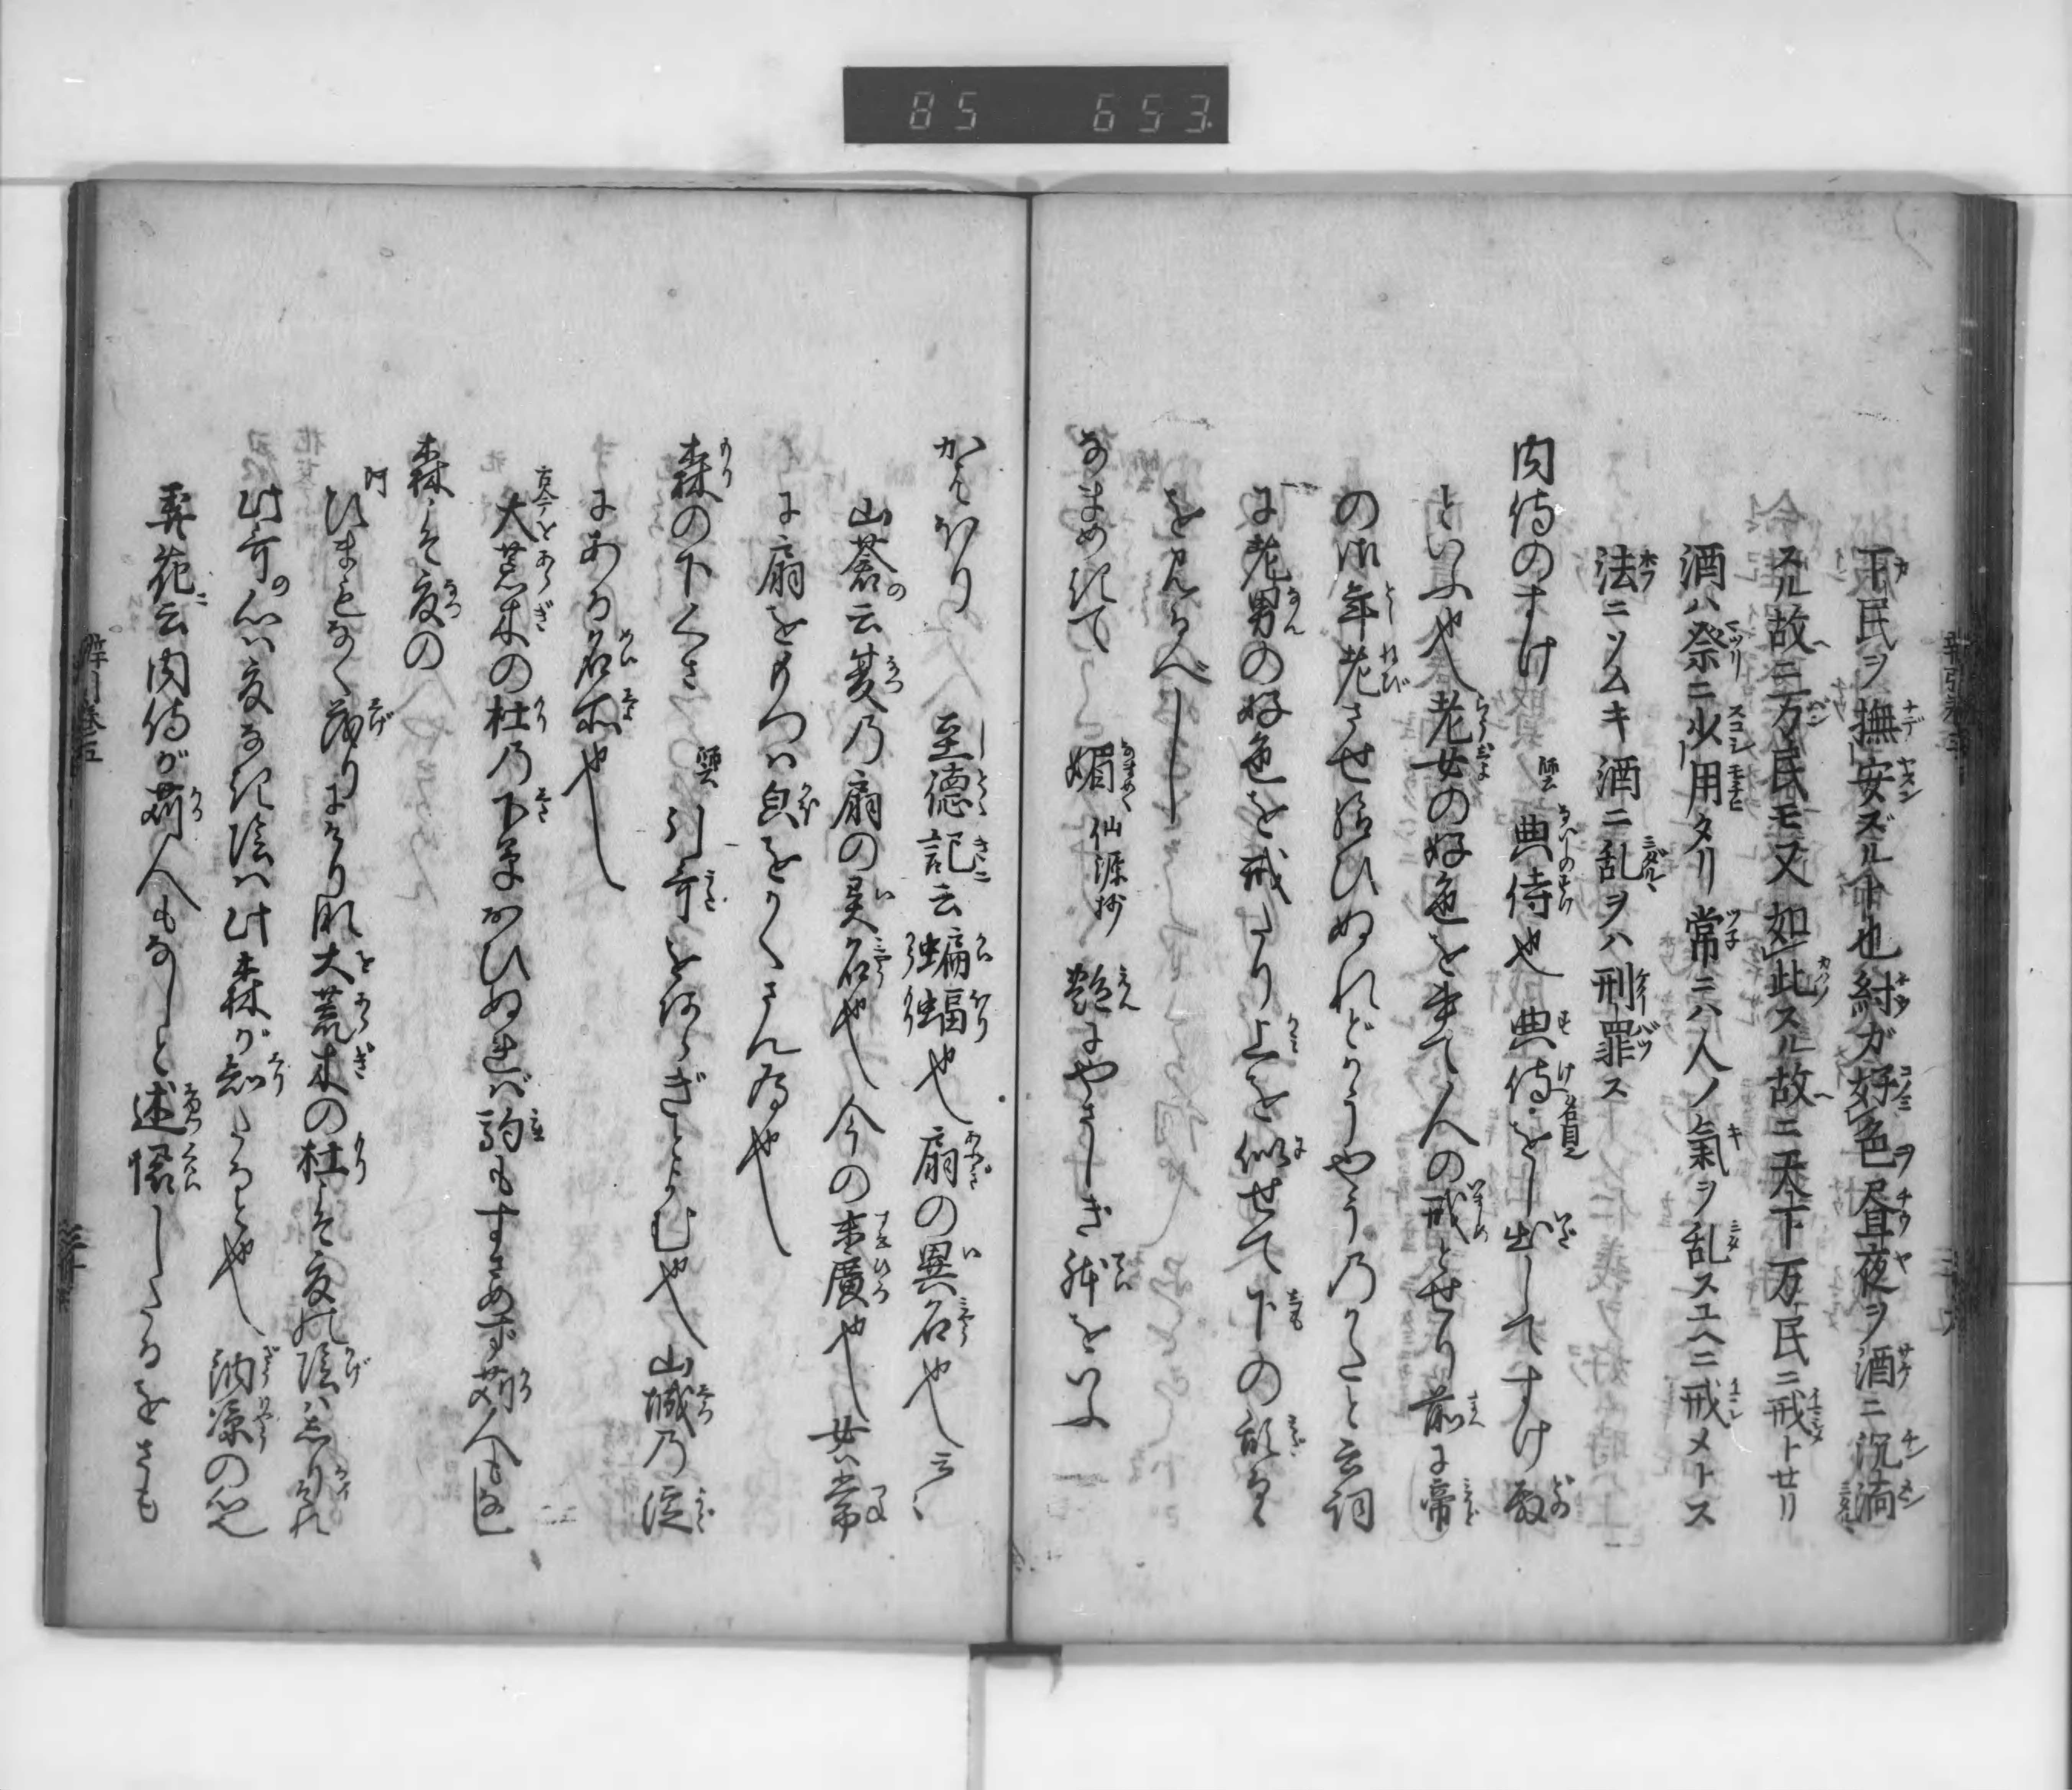 85 653
下民ヲ撫安ズル
也紂ガ好色昼夜ヲ酒ニ沉湎
スル故ニ万民モ又如此スル故ニ天下万民ニ戒トせリ
酒ハ祭ニ少用タリ常ニハ人ノ氣ヲ乱スユヘニ戒メトス
法ニソムキ酒ニ乱ヲハ刑罪ス
内侍のすけ 典侍也 典侍をし出してすけ殿
といふ也老女の好色を書て人の戒とせり前に帝
の御年老させ給ひぬれどかうやうのかたと云詞
に老男の好色を戒たり上を似せて下の
をみるべし
なまめきて 媚 仙源抄 艶にやさしき躰をいふ
かはほり 至徳記云蝙蝠也扇の異名也云〻
山荅云夏乃扇の異名也今の末廣也女ハ常
に扇をもつハ皃をかくさん為也
森の下くさ 引哥をほらぎとよむ也山城乃淀
にある名所也
古今 大荒木の杜乃下草おひぬれば駒もすさめず苅人もなし
森こそ夏の
ひまもなく茂りにけり大荒木の杜こそ夏の陰ハしりけれ
此哥の心ハ夏なき陰ハ此森が知たると也 納凉の心也
弄花云内侍が苅人もなしと述懐したるをさも